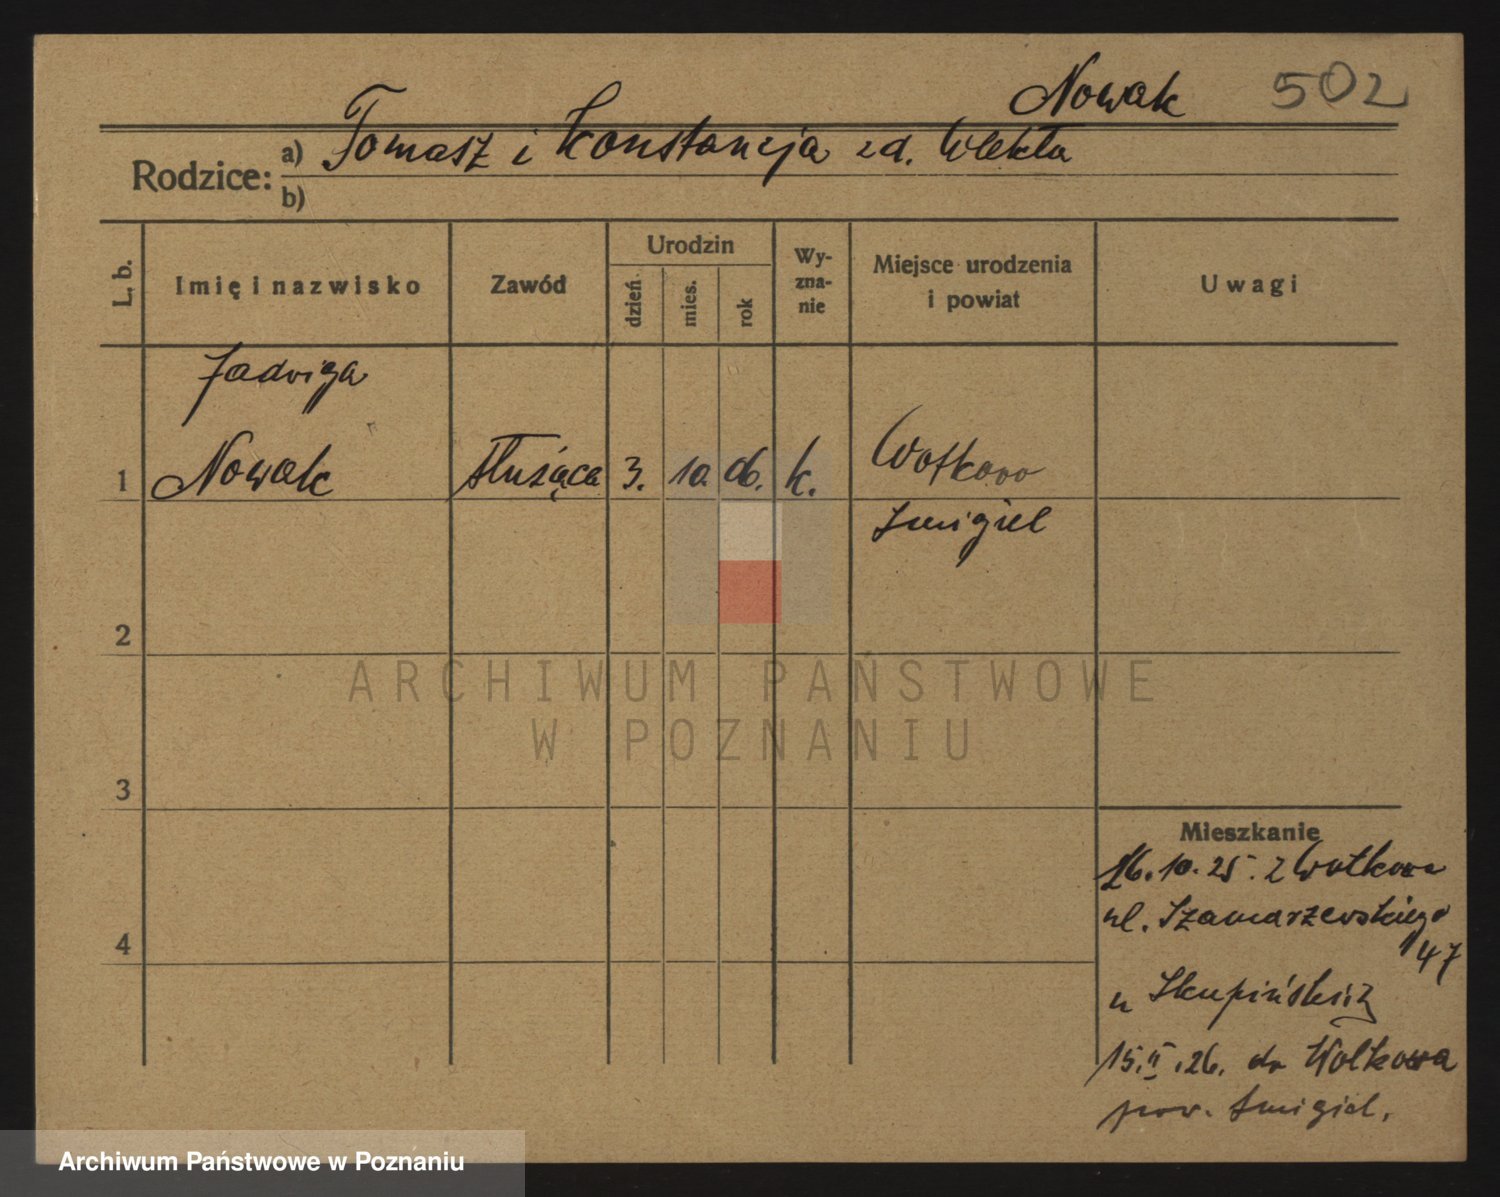 Nowak 502
Rodzice: a) Tomasz i Konstancja zd. Wlekła
b)
L. b. Imię i nazwisko Zawód Urodzin dzień mies. rok Wyznanie Miejsce urodzenia i powiat Uwagi
Jadwiga
1 Nowak służąca 3. 10. 06. k. Wotkowo
Śmigiel
2
ARCHIWUM PAŃSTWOWE
W POZNANIU
3
Mieszkanie
16.10.25. z Wotkowa
ul. Szamarzewskiego
47
4
u Skupińskich
15.II.26. do Wolkowa
pow. Śmigiel.
Archiwum Państwowe w Poznaniu